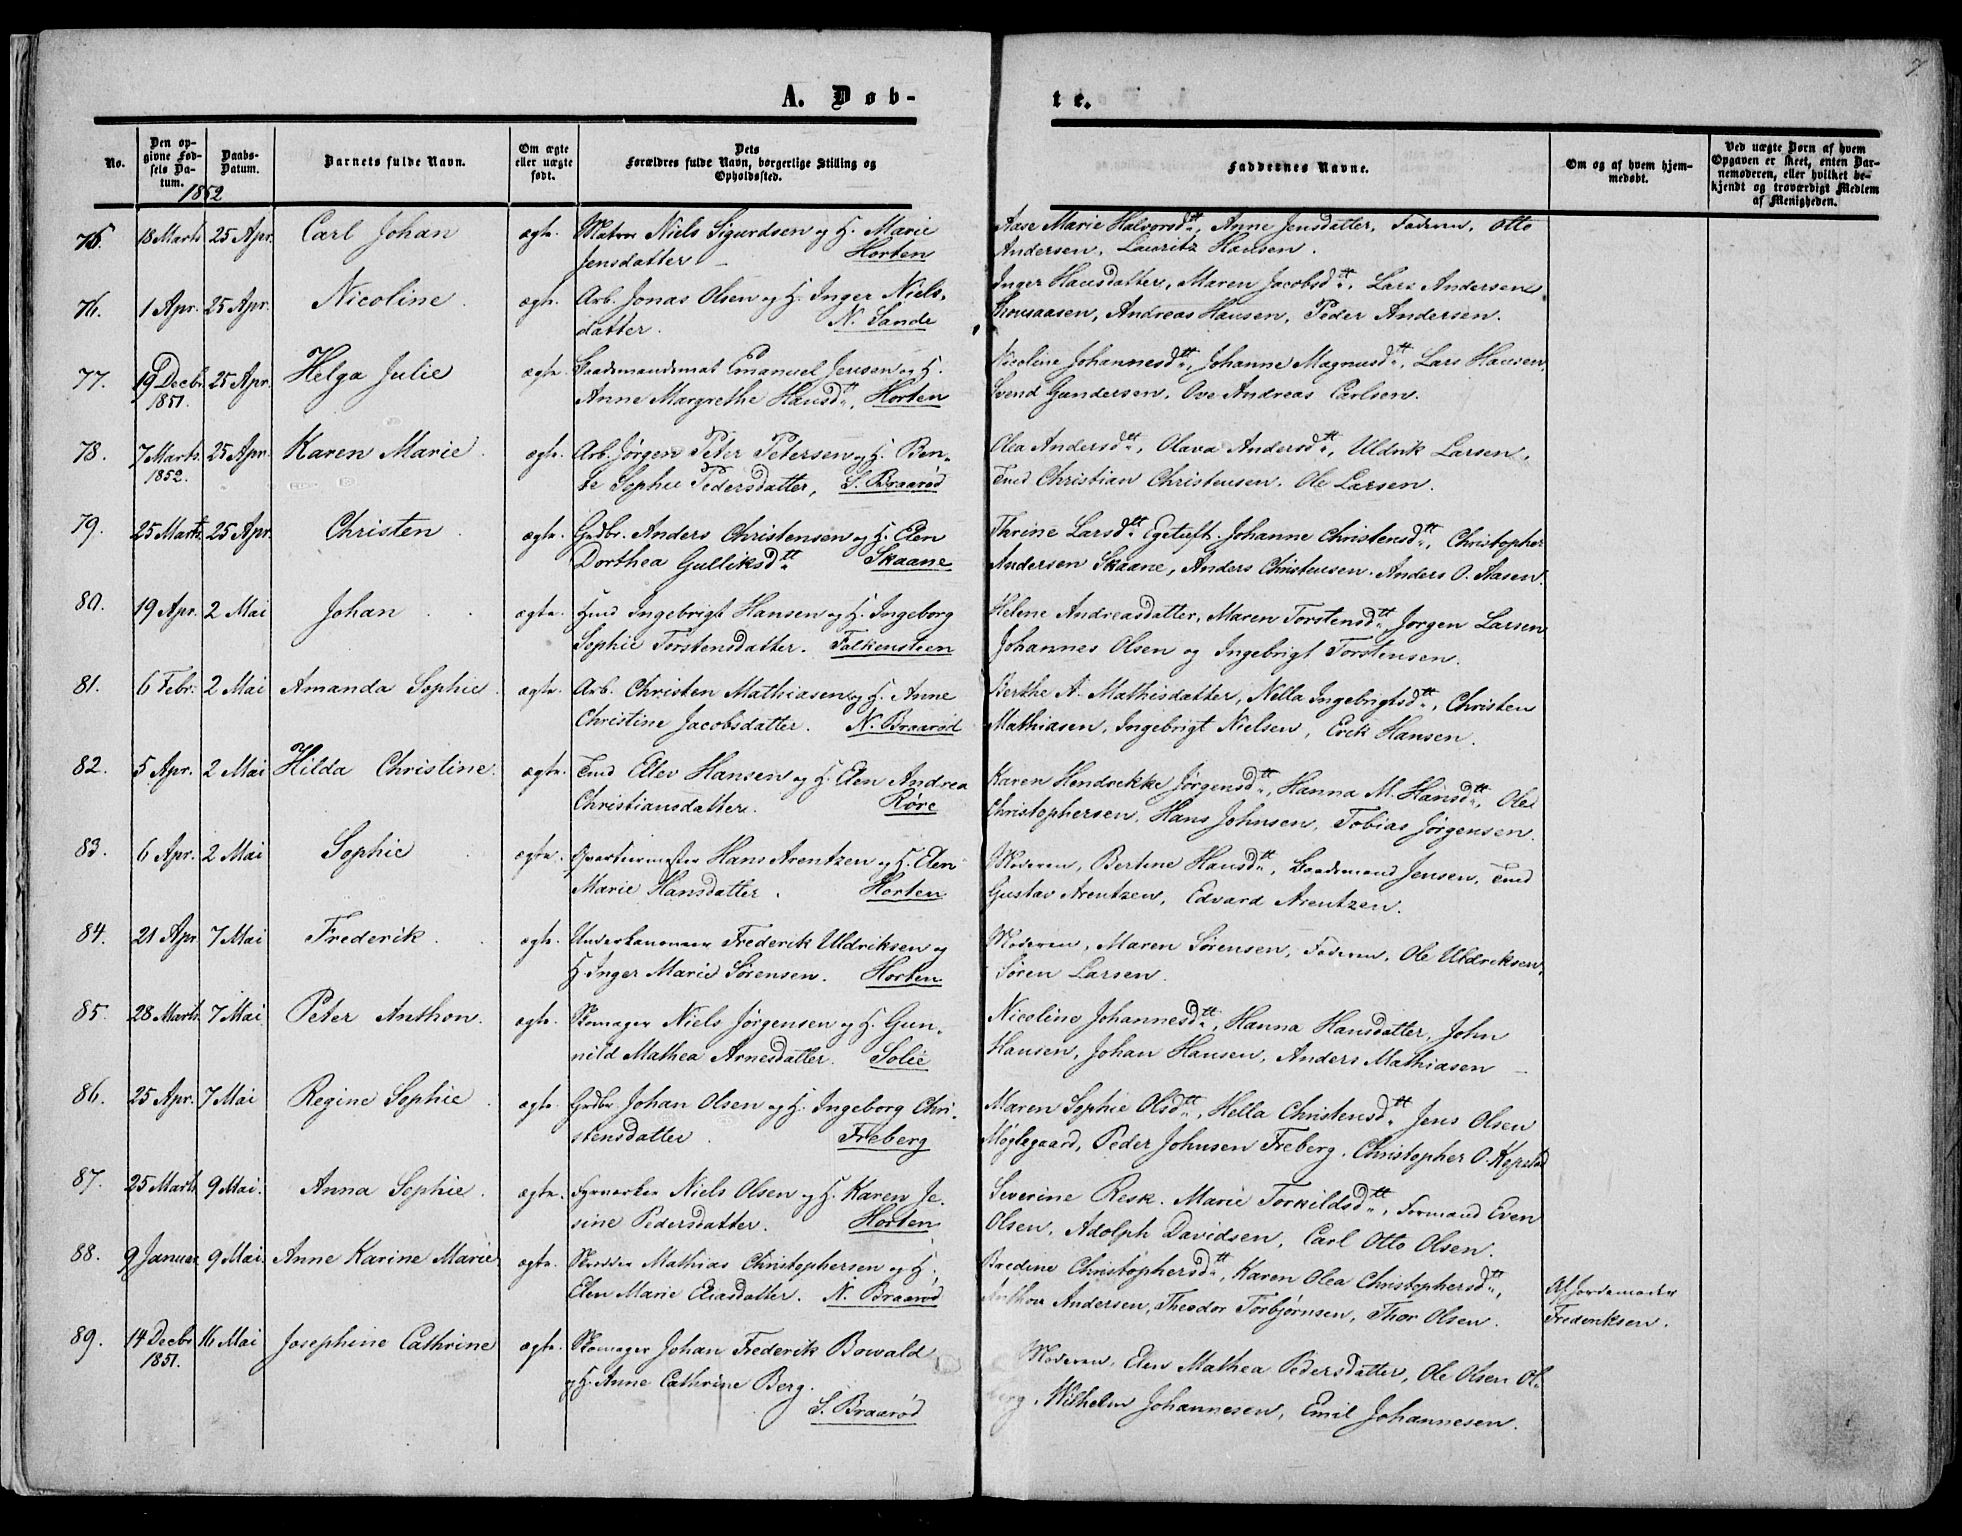 7
A. Døb-
te.
No.
Den op-
givne Fød-
sels Da-
tum.
Daabs-
Datum.
Barnets fulde Navn.
Om ægte
eller uægte
født.
Dets
Forældres fulde Navn, borgerlige Stilling og
Opholdssted.
Faddernes Navne.
Om og af hvem hjem-
medøbt.
Ved uægte Børn af hvem
Opgaven er skeet, enten Bar-
nemoderen, eller hvilket be-
kjendt og troværdigt Medlem
af Menigheden.
1852
75. 18 Marts 25 Apr. Carl Johan ægte. Matros Niels Sigurdsen og H. Marie Aase Marie Halvorsdtt., Anne Jensdatter, Faderen, Otto
Jensdatter – Horten Andersen, Lauritz Hansen.
76. 1 Apr. 25 Apr. Nicoline. ægte. Arb. Jonas Olsen og H. Inger Niels- Inger Hansdatter, Maren Jacobsdtt., Lars Andersen
datter. N. Sande Andreas Hansen, Peder Andersen.
77. 19 Decbr. 25 Apr. Helga Julie ægte. Baadsmandsmat Emanuel Jensen og H. Nicoline Johannesdtt., Johanne Magnusdtt., Lars Hansen,
1851. Anne Margrethe Hansdtt., Horten Svend Gundersen, Ove Andreas Carlsen.
78. 7 Marts 25 Apr. Karen Marie. ægte. Arb. Jørgen Peter Petersen og H. Ben- Olea Andersdtt., Olava Andersdtt., Uldrik Larsen,
1852. te Sophie Pedersdatter, S. Braarød Tmd Christian Christensen, Ole Larsen.
79. 25 Marts 25 Apr. Christen. ægte. Grdbr. Anders Christensen og H. Elen Thrine Larsdtt. Egetuft. Johanne Christensdtt., Christopher
Dorthea Gulliksdtt. Skaane Andersen Skaane, Anders Christensen. Anders O. Aasen.
80. 19 Apr. 2 Mai Johan. ægte. Hmd Ingebrigt Hansen og H. Ingeborg Helene Andreasdatter, Maren Torstensdtt., Jørgen Larsen
Sophie Torstensdatter. Falkensteen Johannes Olsen og Ingebrigt Torstensen.
81. 6 Febr. 2 Mai Amanda Sophie. ægte. Arb. Christen Mathiasen og H. Anne Berthe A. Mathisdatter, Nella Ingebrigtsdtt., Christen
Christine Jacobsdatter. N. Braarød Mathiasen, Ingebrigt Nielsen, Erik Hansen.
82. 5 Apr. 2 Mai Hilda Christine. ægte. Tmd Elev Hansen og H. Elen Andrea Karen Hendrekke Jørgensdtt., Hanna M. Hansdtt., Ole
Christiansdatter. Røre Christophersen, Hans Johnsen, Tobias Jørgensen.
83. 6 Apr. 2 Mai Sophie. ægte. Qvarteermester Hans Arentzen og H. Elen Moderen, Bertine Hansdtt., Baadsmand Jensen, Tmd
Marie Hansdatter. Horten Gustav Arentzen, Edvard Arentzen.
84. 21 Apr 7 Mai Frederik. ægte. Underkanoneer Frederik Uldriksen og Moderen, Maren Sørensen, Faderen, Ole Uldriksen,
H. Inger Marie Sørensen. Horten Søren Larsen.
85. 28 Marts 7 Mai Peter Anthon. ægte. Skomager Niels Jørgensen og H. Gun- Nicoline Johannesdtt., Hanna Hansdatter, John
nild Mathea Arnesdatter. Solie Hansen, Johan Hansen, Anders Mathiasen –
86. 25 Apr. 7 Mai Regine Sophie. ægte. Grdbr Johan Olsen og H. Ingeborg Chri- Maren Sophie Olsdtt., Hella Christensdtt. Jens Olsen
stensdatter. Freberg Møglegaard, Peder Johnsen Freberg, Christopher O. Kopstad
87. 25 Marts 9 Mai. Anna Sophie. ægte. Fyrverker Niels Olsen og H. Karen Je- Severine Resk. Marie Torkildsdtt., Formand Even
sine Pedersdatter. Horten Olsen, Adolph Davidsen, Carl Otto Olsen.
88. 9 Januar 9 Mai. Anne Karine Marie ægte. Skredder Mathias Christophersen og H. Bredine Christophersdtt., Karen Olea Christophersdtt., Af Jordemoder
Elen Marie Eliasdatter. N. Braarød Anthon Andersen, Theodor Torbjørnsen, Thor Olsen. Frederiksen.
89. 14 Decbr 16 Mai Josephine Cathrine ægte. Skomager Johan Frederik Bowald Moderen, Elen Mathea Pedersdatter, Ole Olsen Ol-
1851. og H. Anne Cathrine Berg. berg, Wilhelm Johannesen, Emil Johannesen.
S. Braarød